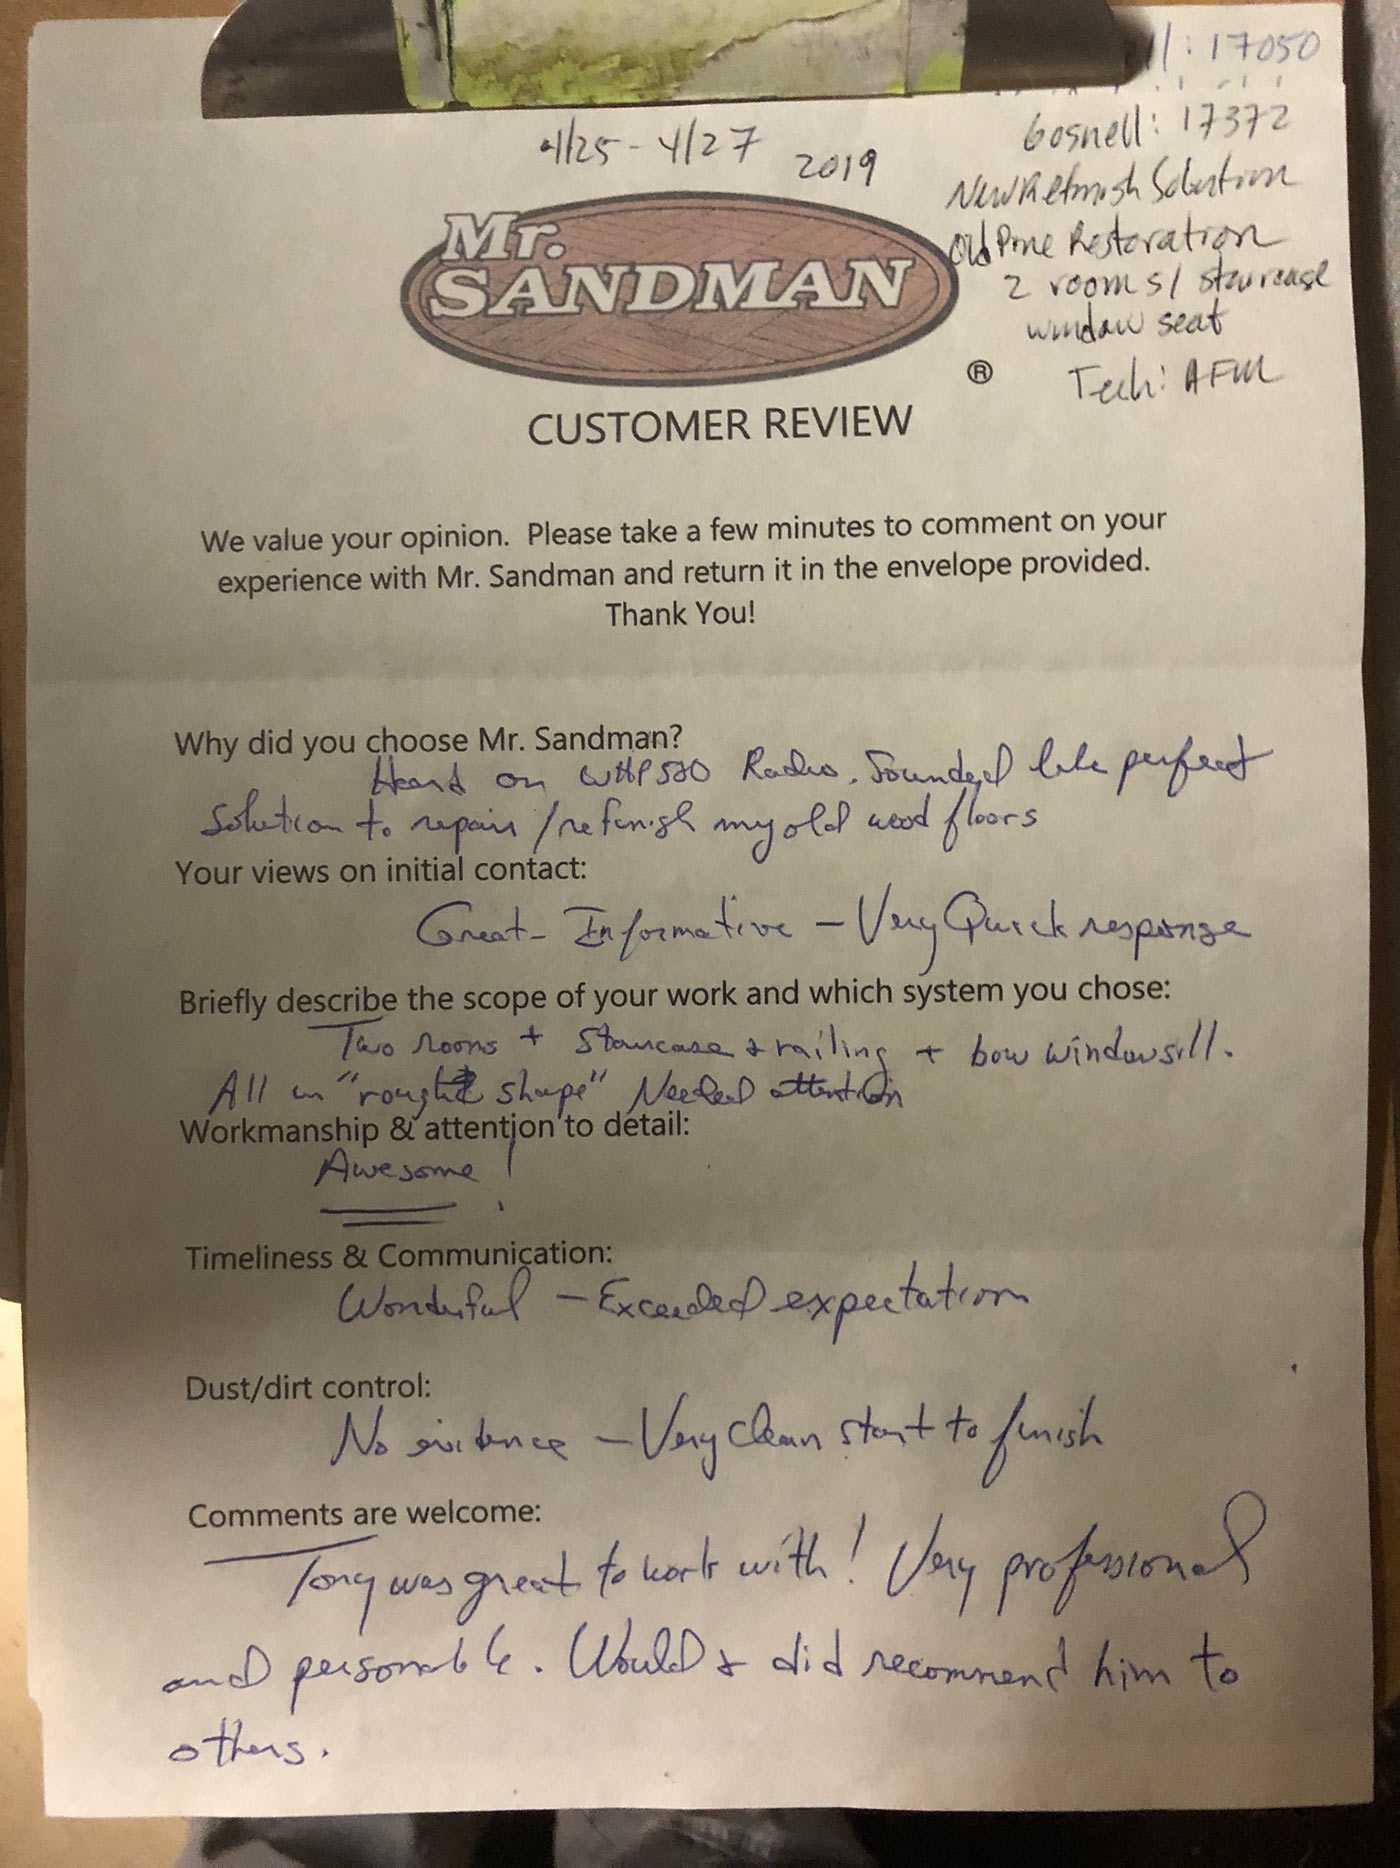 : 17050
4/25 - 4/27 2019
Gosnell: 17372
New Refinish Solution
Old Pine Restoration
2 rooms / staircase
window seat
Tech: AFM
Mr.
SANDMAN
®
CUSTOMER REVIEW
We value your opinion. Please take a few minutes to comment on your
experience with Mr. Sandman and return it in the envelope provided.
Thank You!
Why did you choose Mr. Sandman?
Heard on WHP580 Radio. Sounded like perfect
solution to repair/refinish my old wood floors
Your views on initial contact:
Great - Informative - Very Quick response
Briefly describe the scope of your work and which system you chose:
Two rooms + staircase & railing + bow windowsill.
All in "rough shape" Needed attention
Workmanship & attention to detail:
Awesome!
Timeliness & Communication:
Wonderful - Exceeded expectation
Dust/dirt control:
No evidence - Very clean start to finish
Comments are welcome:
Tony was great to work with! Very professional
and personable. Would & did recommend him to
others.